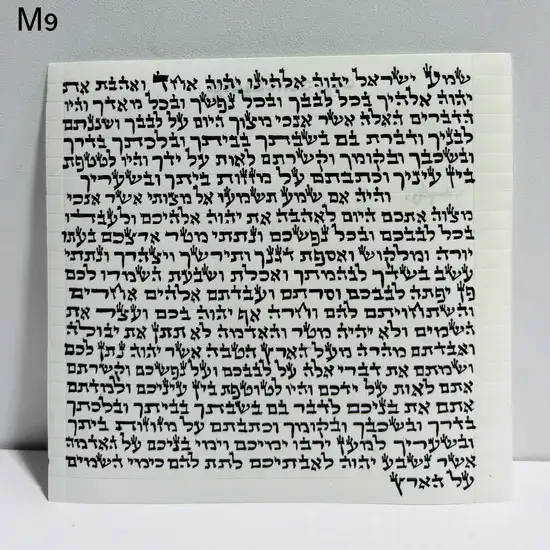 M9
שמע ישראל יהוה אלהינו יהוה אחד ואהבת את
יהוה אלהיך בכל לבבך ובכל נפשך ובכל מאדך והיו
הדברים האלה אשר אנכי מצוך היום על לבבך ושננתם
לבניך ודברת בם בשבתך בביתך ובלכתך בדרך
ובשכבך ובקומך וקשרתם לאות על ידך והיו לטטפת
בין עיניך וכתבתם על מזזות ביתך ובשעריך
והיה אם שמע תשמעו אל מצותי אשר אנכי
מצוה אתכם היום לאהבה את יהוה אלהיכם ולעבדו
בכל לבבכם ובכל נפשכם ונתתי מטר ארצכם בעתו
יורה ומלקוש ואספת דגנך ותירשך ויצהרך ונתתי
עשב בשדך לבהמתך ואכלת ושבעת השמרו לכם
פן יפתה לבבכם וסרתם ועבדתם אלהים אחרים
והשתחויתם להם וחרה אף יהוה בכם ועצר את
השמים ולא יהיה מטר והאדמה לא תתן את יבולה
ואבדתם מהרה מעל הארץ הטבה אשר יהוה נתן לכם
ושמתם את דברי אלה על לבבכם ועל נפשכם וקשרתם
אתם לאות על ידכם והיו לטוטפת בין עיניכם ולמדתם
אתם את בניכם לדבר בם בשבתך בביתך ובלכתך
בדרך ובשכבך ובקומך וכתבתם על מזוזות ביתך
ובשעריך למען ירבו ימיכם וימי בניכם על האדמה
אשר נשבע יהוה לאבתיכם לתת להם כימי השמים
על הארץ